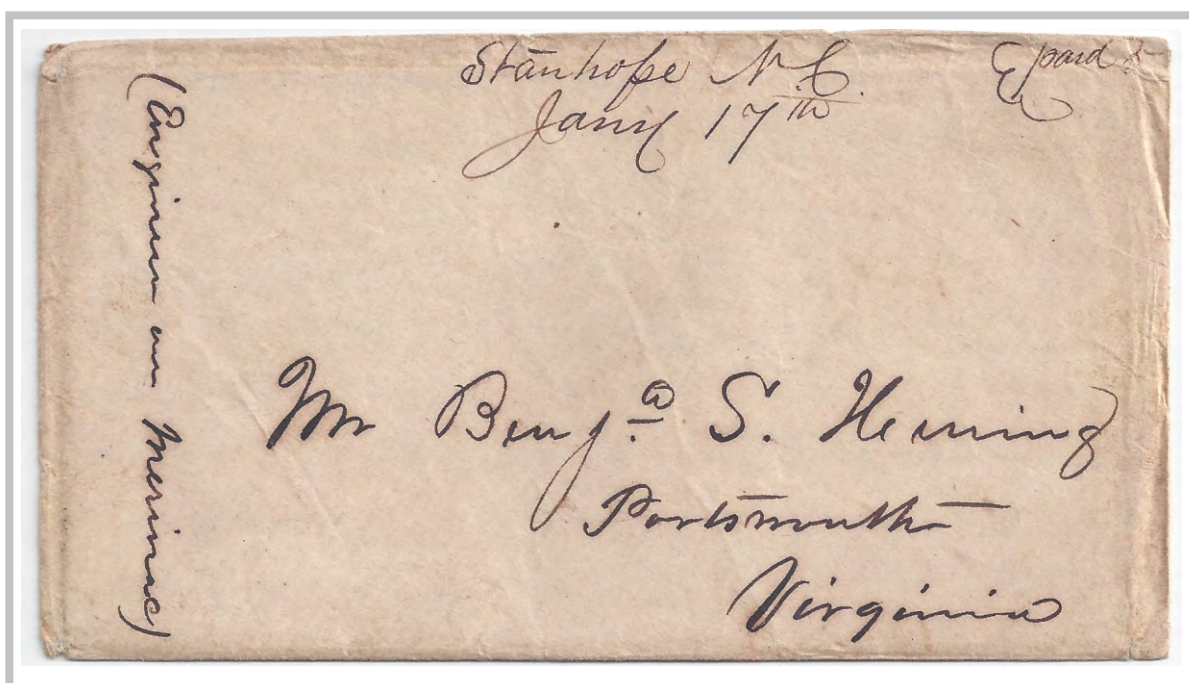 Stanhope N.C.
Jany 17th
paid 5
(Engineer on Merrimac)
Mr Benja S. Herring
Portsmouth
Virginia